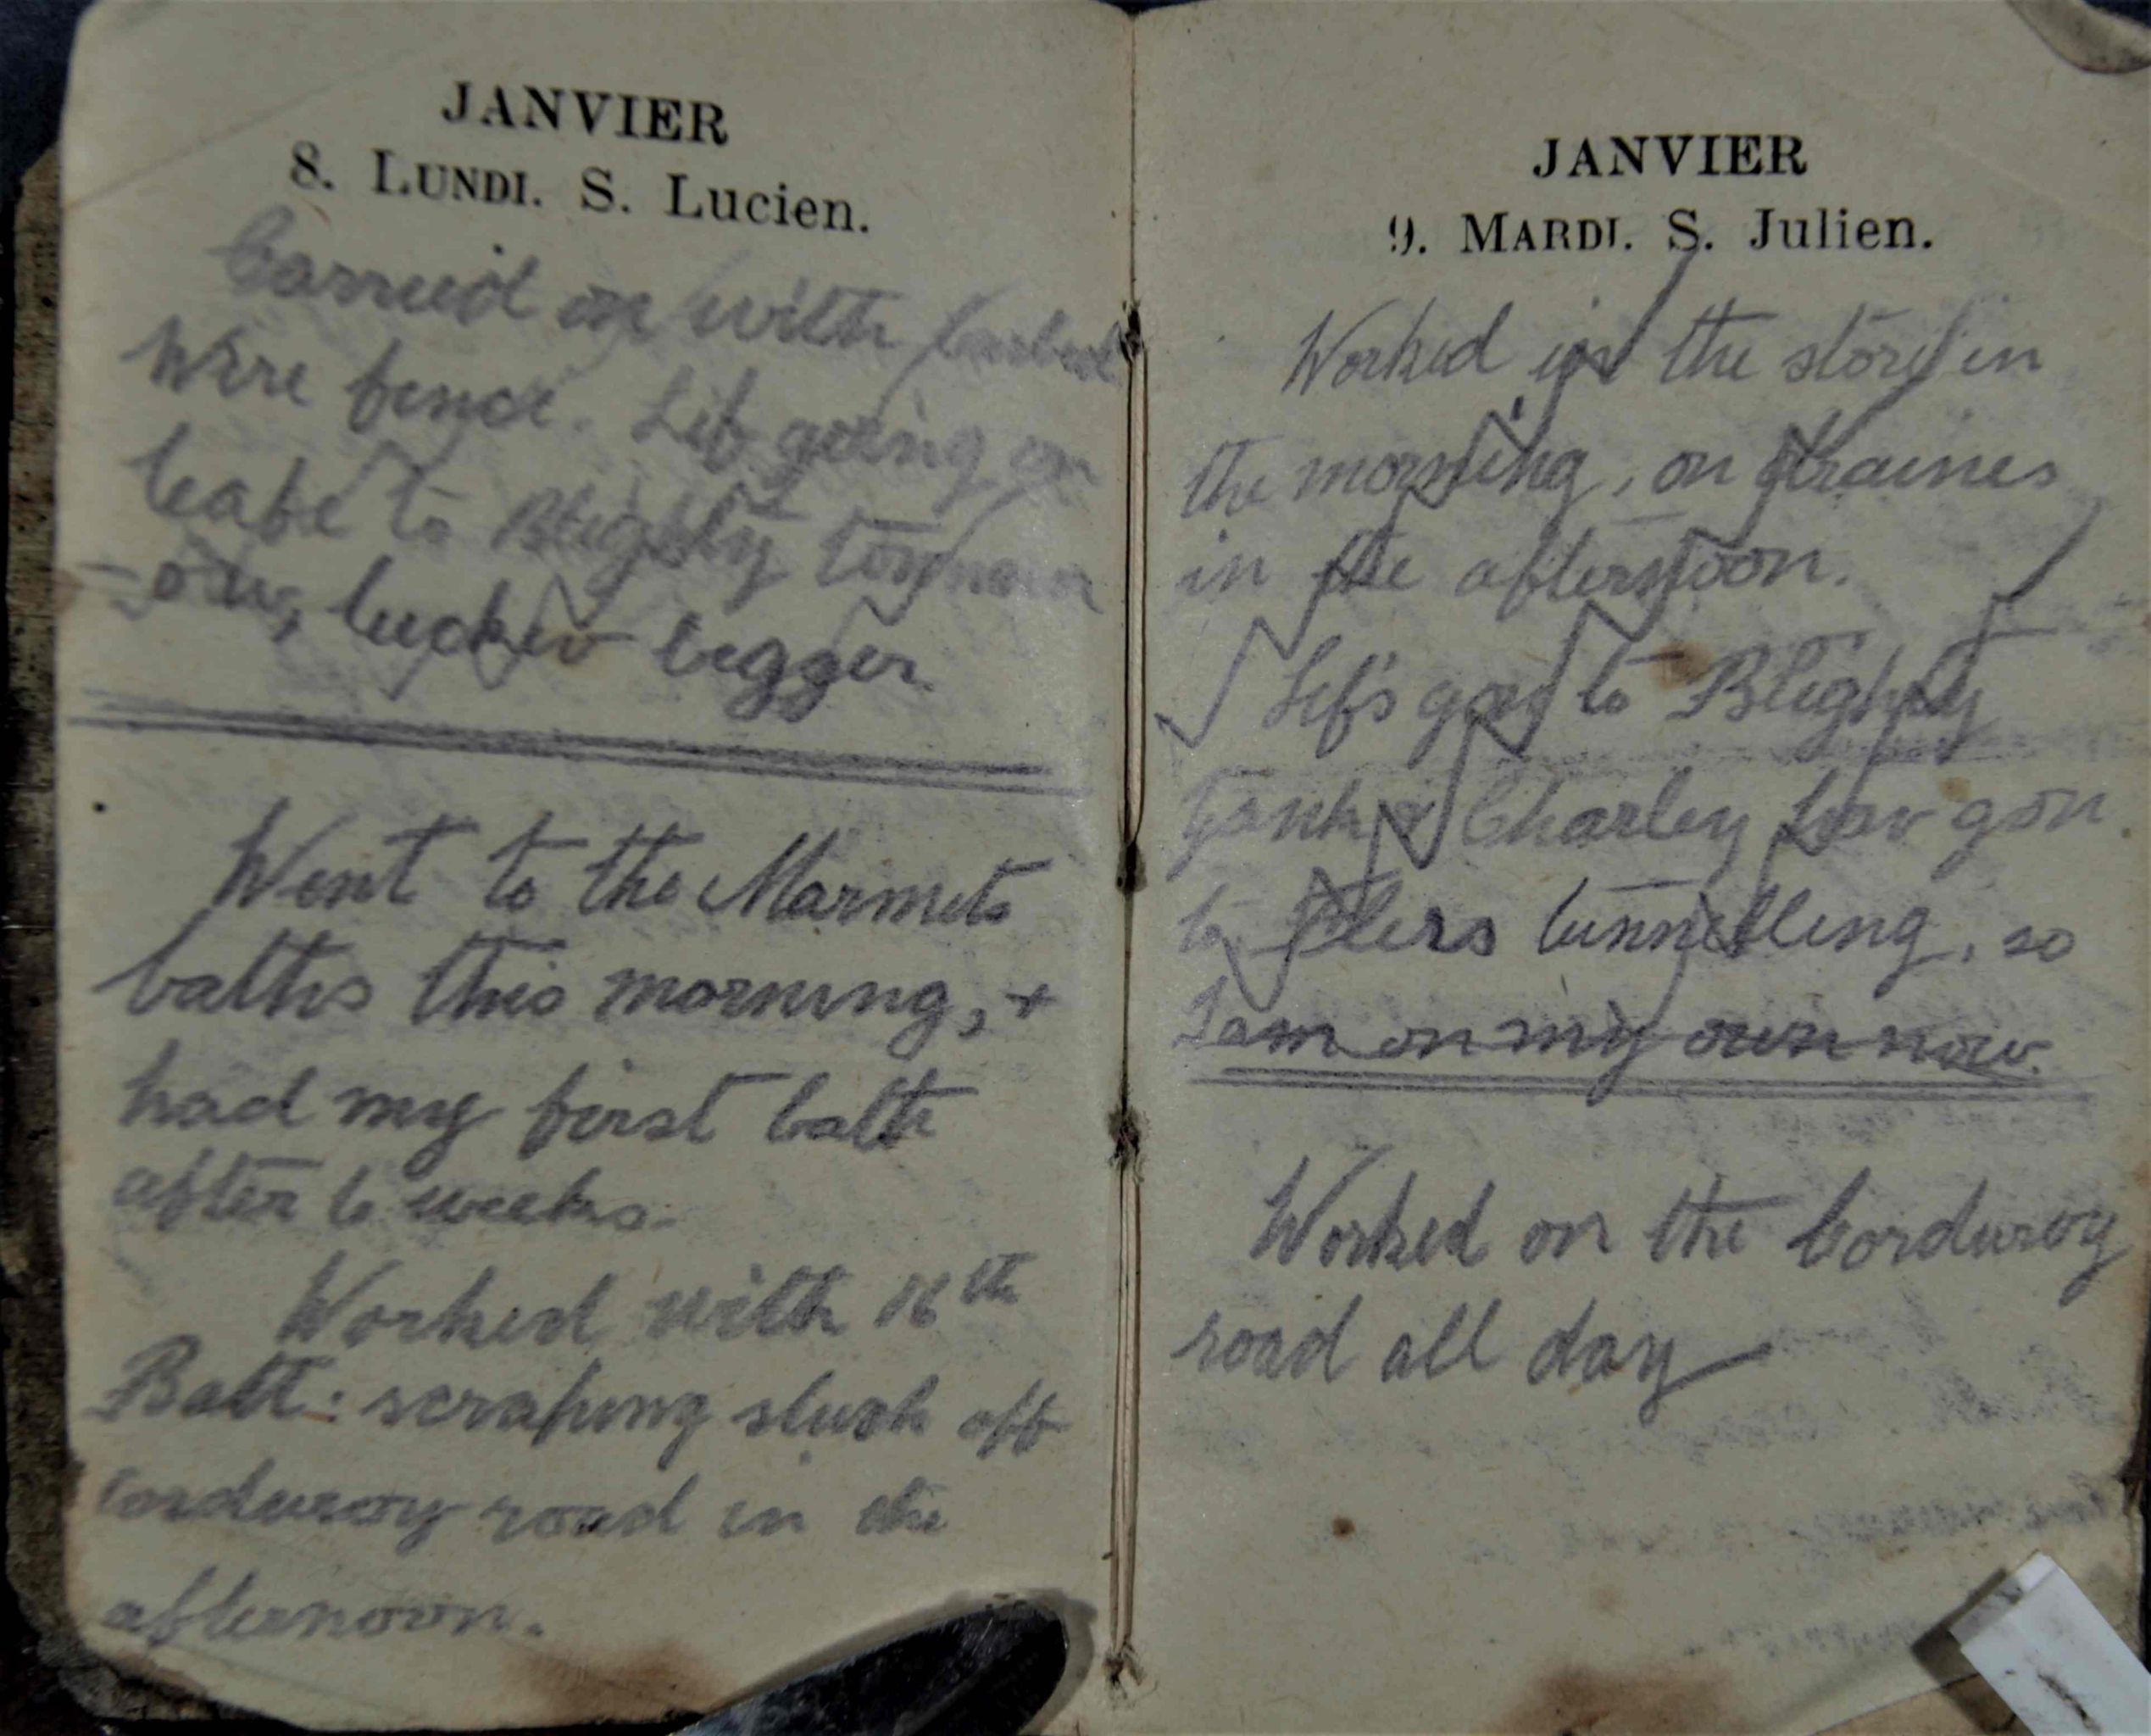 JANVIER
8. LUNDI. S. Lucien.
Carried on with barbed
wire fence. Lif going on
leafe to Blighty tomorr
-ow, lucker begger
Went to the Marmets
baths this morning, +
had my first bath
after 6 weeks.
Worked with 16th
Batt: scraping slush off
corduroy road in the
afternoon.
JANVIER
9. MARDI. S. Julien.
Worked in the store in
the morning, on
in the afternoon.
Lif's gon to Blighty
& Charley hav gon
to Flers tunnelling, so
I am on my own now.
Worked on the Corduroy
road all day